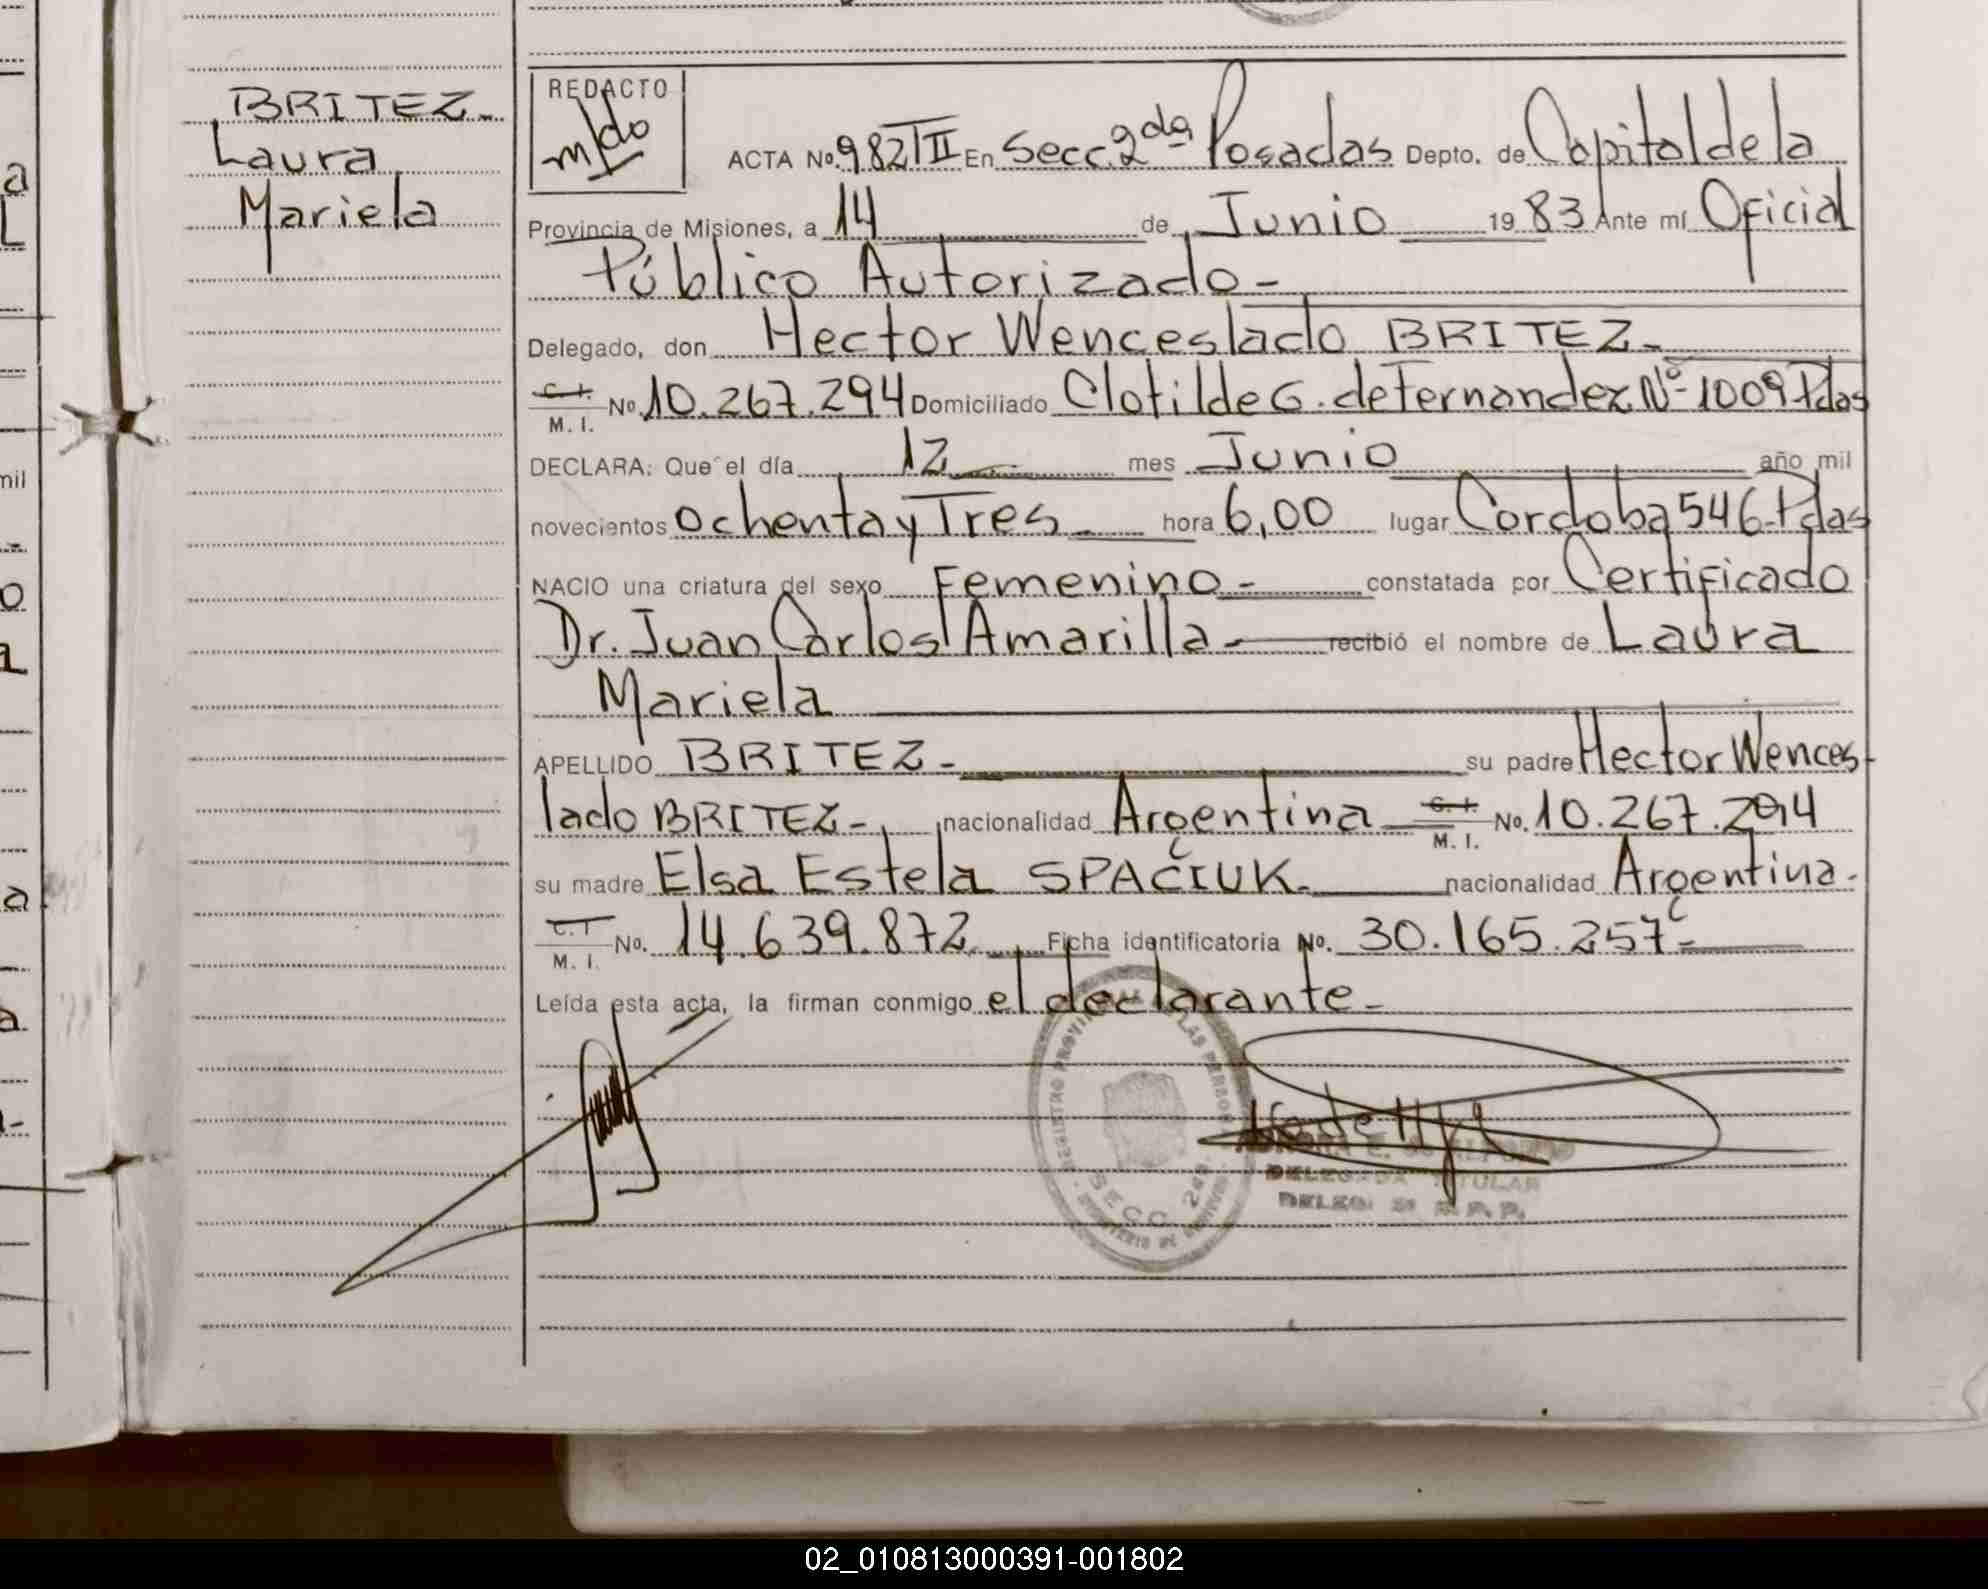 BRITEZ-
Laura
Mariela
REDACTO
ACTA No. 982 TII En Secc. 2da Posadas Depto. de Capital de la
Provincia de Misiones, a 14 de Junio 1983 Ante mí Oficial
Público Autorizado-
Delegado, don Hector Wenceslado BRITEZ-
C. I. M. I. No. 10.267.294 Domiciliado Clotilde G. de Fernandez Nº 1009 Pdas
DECLARA: Que el día 12 mes Junio año mil
novecientos Ochenta y Tres hora 6,00 lugar Cordoba 546-Pdas
NACIO una criatura del sexo Femenino- constatada por Certificado
Dr. Juan Carlos Amarilla- recibió el nombre de Laura
Mariela
APELLIDO BRITEZ- su padre Hector Wences-
lado BRITEZ- nacionalidad Argentina C. I. M. I. No. 10.267.294
su madre Elsa Estela SPACIUK- nacionalidad Argentina-
C. I. M. I. No. 14.639.872 Ficha identificatoria No. 30.165.257-
Leída esta acta, la firman conmigo el declarante-
SECC. 2da
DELEGADA TITULAR
02_010813000391-001802